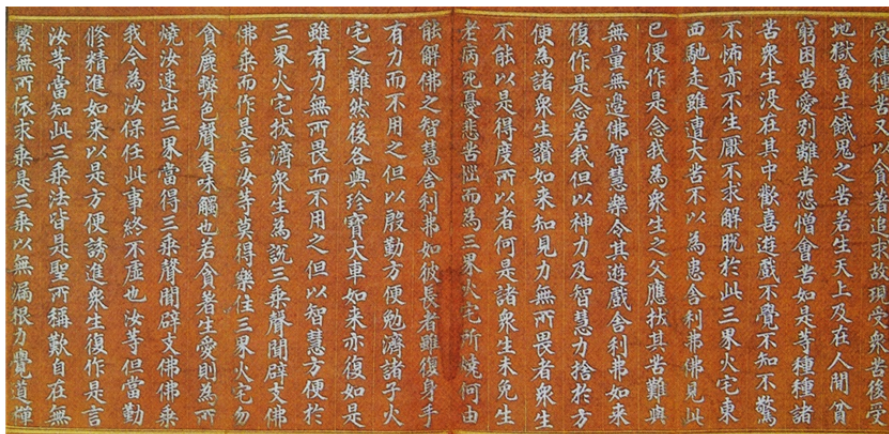 受種種苦又以貪著追求故現受衆苦後受
地獄畜生餓鬼之苦若生天上及在人間貧
窮困苦愛別離苦怨憎會苦如是等種種諸
苦衆生没在其中歡喜遊戲不覺不知不驚
不怖亦不生厭不求解脫於此三界火宅東
西馳走雖遭大苦不以為患舍利弗佛見此
已便作是念我為衆生之父應拔其苦難與
無量無邊佛智慧樂令其遊戲舍利弗如来
復作是念若我但以神力及智慧力捨於方
便為諸衆生讚如来知見力無所畏者衆生
不能以是得度所以者何是諸衆生未免生
老病死憂悲苦惱而為三界火宅所燒何由
能解佛之智慧舍利弗如彼長者雖復身手
有力而不用之但以慇勤方便勉濟諸子火
宅之難然後各與珍寶大車如来亦復如是
雖有力無所畏而不用之但以智慧方便於
三界火宅拔濟衆生為說三乘聲聞辟支佛
佛乘而作是言汝等莫得樂住三界火宅勿
貪麁弊色聲香味觸也若貪著生愛則為所
燒汝速出三界當得三乘聲聞辟支佛佛乘
我今為汝保任此事終不虛也汝等但當勤
修精進如来以是方便誘進衆生復作是言
汝等當知此三乘法皆是聖所稱歎自在無
繫無所依求乘是三乘以無漏根力覺道禪